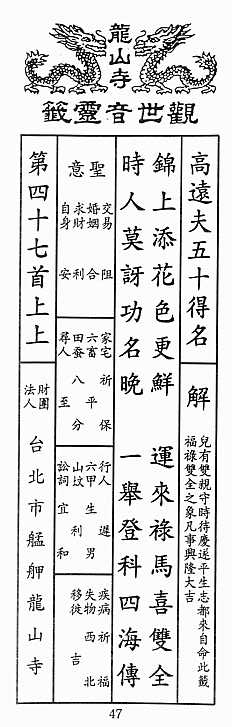 龍山寺
觀世音靈籤
高遠夫五十得名
解
兒有雙親守時待慶遂平生志都來自命此籤
福祿雙全之象凡事興隆大吉
錦上添花色更鮮 運來祿馬喜雙全
時人莫訝功名晚 一舉登科四海傳
聖意
交易 阻
婚姻 合
求財 利
自身 安
家宅 祈保
六畜 平
田蚕 八分
尋人 至
行人 遲
六甲 生男
山坟 利
訟詞 宜和
疾病 祈福
失物 西北
移徙 吉
第四十七首上上
財團法人
台北市艋舺龍山寺
47